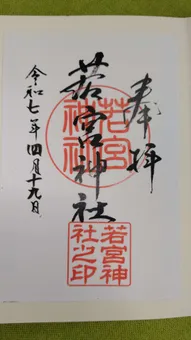 奉拝
若宮神社
若宮神社
若宮神
社之印
令和七年四月十九日